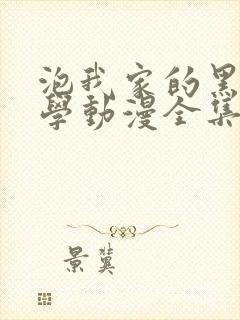 泡我家的黑
學動漫全集
景冀